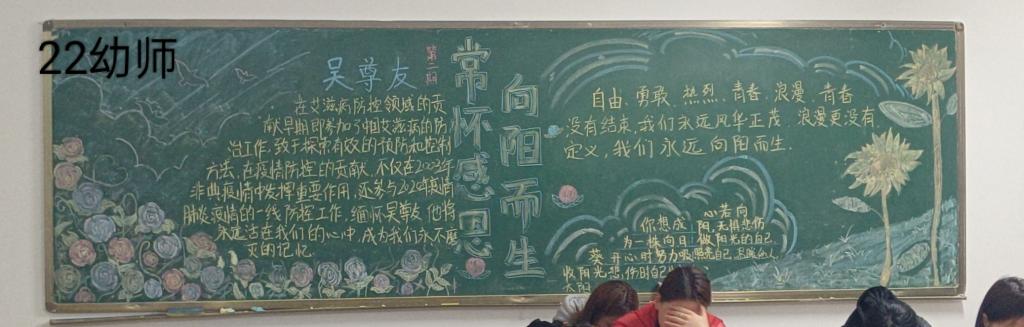 22幼师
第二期
吴尊友
在艾滋病防控领域的贡
献早期即参加了中国艾滋病的防
治工作,致于探索有效的预防和控制
方法,在疫情防控的贡献,不仅在2003年
非典疫情中发挥重要作用,还参与2020年
肺炎疫情的一线防控工作,缅怀吴尊友,他将
永远活在我们的心中,成为我们永不磨
灭的记忆.
常怀感恩
向阳而生
自由、勇敢、热烈、青春、浪漫 青春
没有结束,我们永远风华正茂 浪漫更没有
定义,我们永远向阳而生.
你想成
为一株向日
葵 开心时努力吸
收阳光想,伤时自己
太阳
心若向
阳,无惧悲伤
做阳光的自己
照亮自己